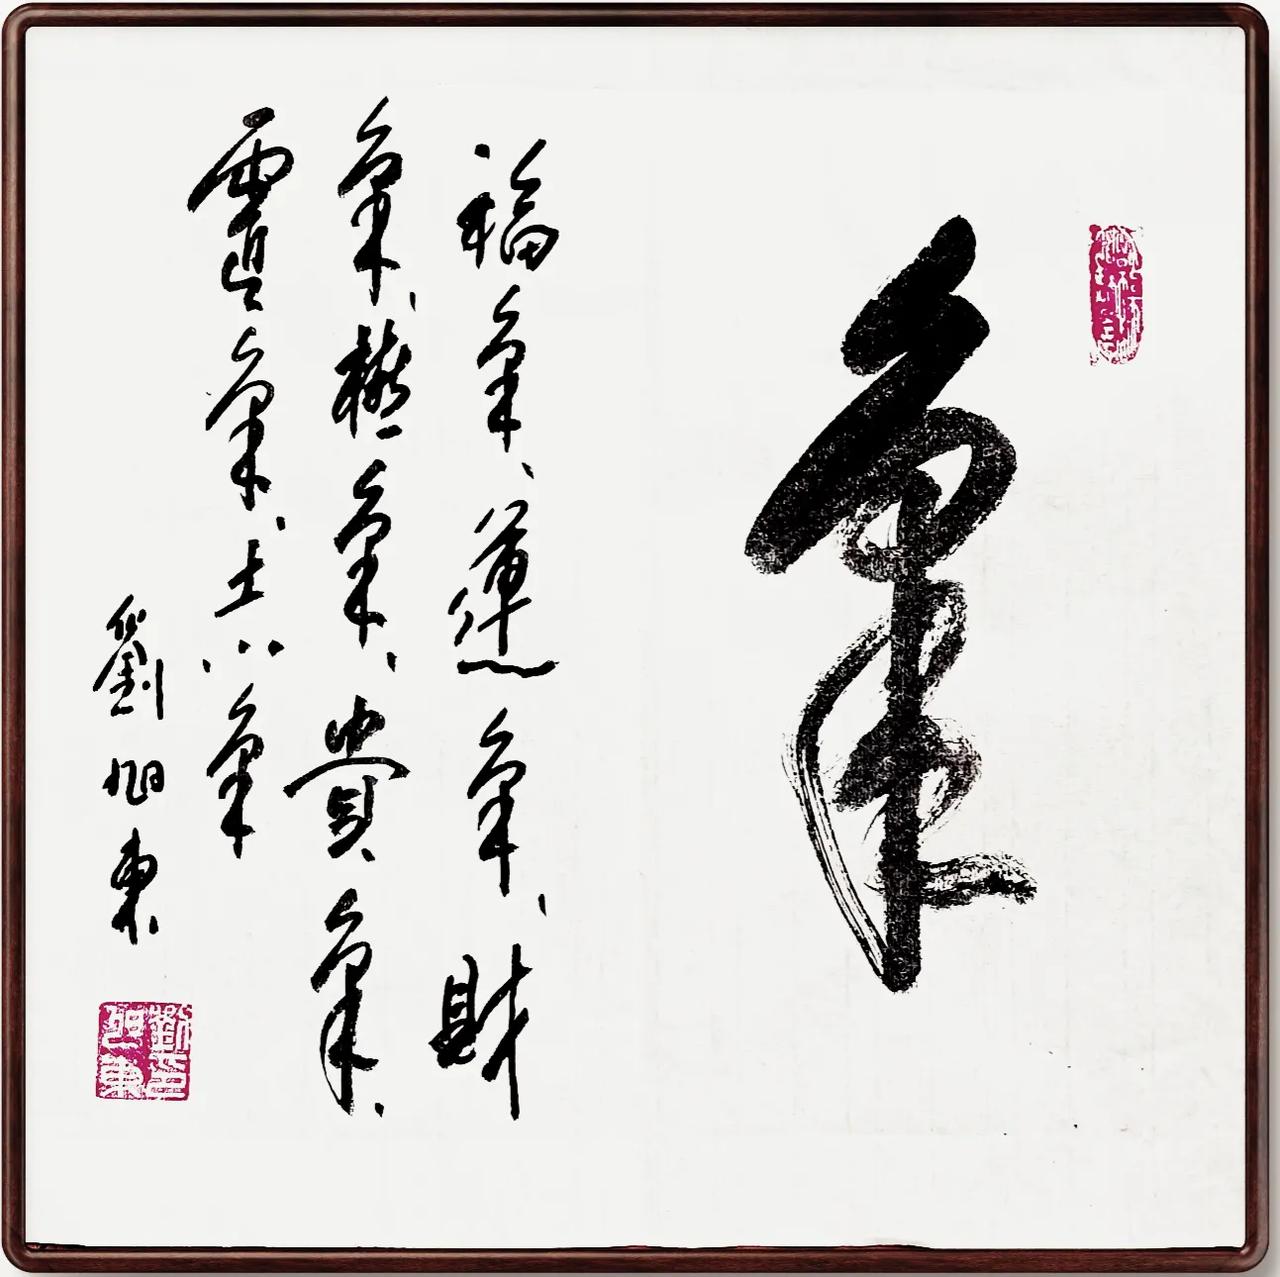 氣
福氣、運氣、財
氣、氣、貴氣、
氣、志氣
劉旭東
劉旭東印